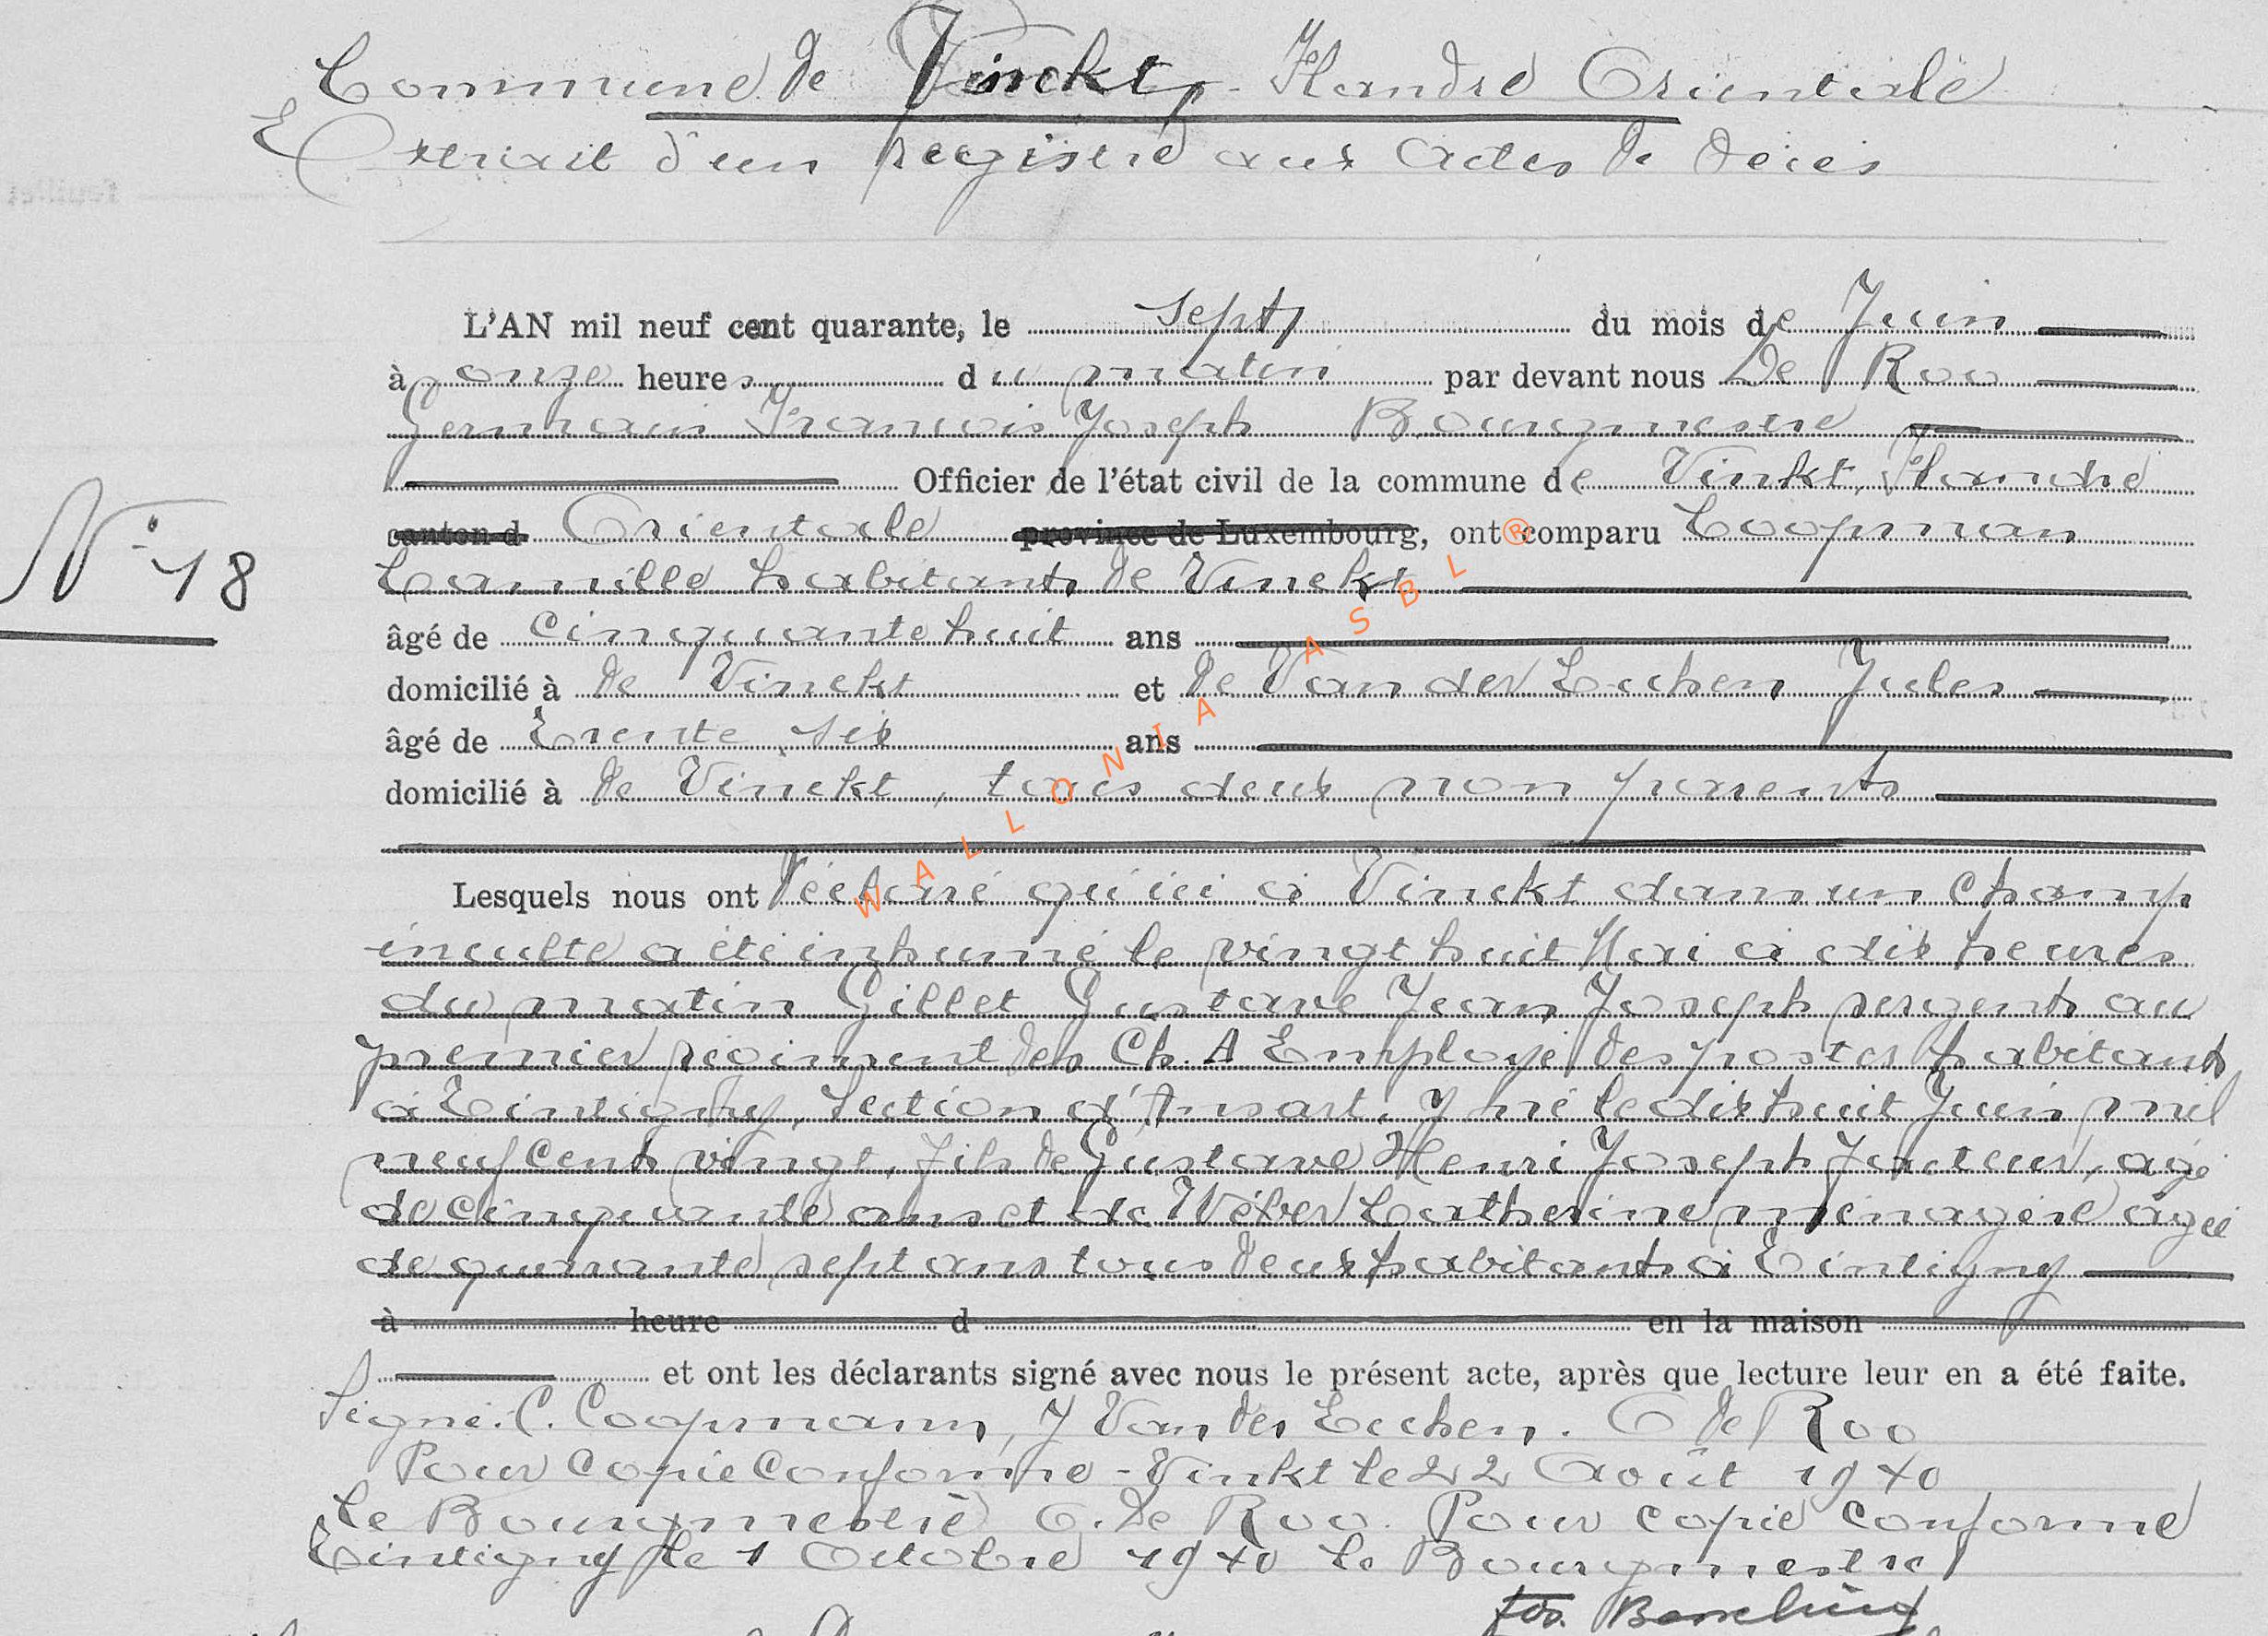 Commune de Vinckt, Flandre Orientale
Extrait d'un registre aux actes de décès
L'AN mil neuf cent quarante, le sept du mois de Juin
à onze heures du matin par devant nous De Roo
Germain François Joseph Bourgmestre
Officier de l'état civil de la commune de Vinkt, Flandre
N° 18
canton d Orientale province de Luxembourg, ont comparu Coopman
Camille habitant de Vinckt
âgé de cinquante huit ans
domicilié à de Vinckt et de Van der Eecken Jules
âgé de trente six ans
domicilié à de Vinckt, tous deux non parents
Lesquels nous ont déclaré qu'ici à Vinckt dans un champ
inculte a été inhumé le vingt huit Mai à dix heures
du matin Gillet Gustave Jean Joseph sergent au
premier régiment des Ch. A Employé des postes habitant
à Tintigny, section d'Ansart, y né le dix huit Juin mil
neuf cent vingt, fils de Gustave Henri Joseph facteur, agé
de cinquante ans et de Wéber Catherine ménagère âgée
de quarante sept ans tous deux habitant à Tintigny
à heure d en la maison
et ont les déclarants signé avec nous le présent acte, après que lecture leur en a été faite.
Signé. C. Coopmann, J Van der Eecken. G de Roo
Pour Copie Conforme - Vinkt le 22 Août 1940
Le Bourgmestre G. De Roo. Pour copie conforme
Tintigny le 1 Octobre 1940 le Bourgmestre
WALLONIA ASBL ®